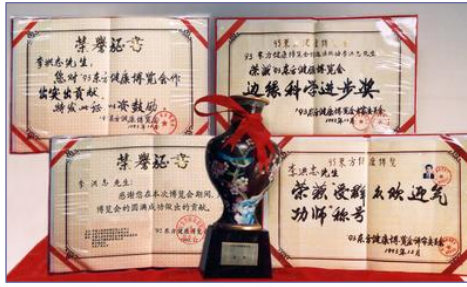 荣誉证书
李洪志先生:
您对'93东方健康博览会作
出突出贡献,
特发此证 以资鼓励。
1993年12月
93东方健康博览
93东方健康博览会
李洪志先生
荣获'93东方健康博览会
边缘科学进步奖
1993年12月
荣誉证书
李洪志先生:
感谢您在本次博览会期间,
博览会的圆满成功做出的贡献。
'92东方健康博览会
93东方健康博览
李洪志先生
荣获"受群众欢迎气
功师"称号
93东方健康博览会评审委员会
1993年12月